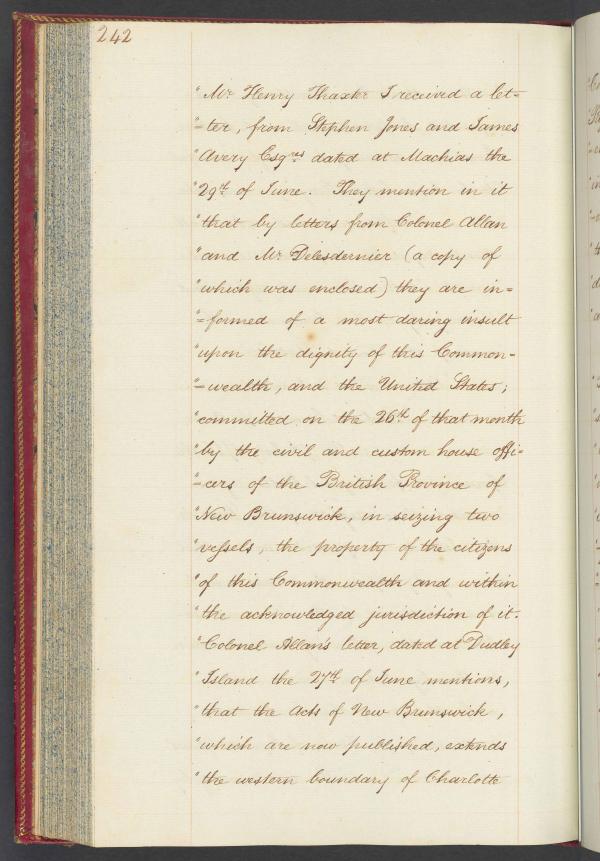 242
"Mr. Henry Thaxter I received a let=
"=ter, from Stephen Jones and James
"Avery Esqres dated at Machias the
"29th of June. They mention in it
"that by letters from Colonel Allan
"and Mr. Delesdernier (a copy of
"which was enclosed) they are in=
"=formed of a most daring insult
"upon the dignity of this Common-
"=wealth, and the United States;
"committed on the 26th of that month
"by the civil and custom house offi-
"=cers of the British Province of
"New Brunswick, in seizing two
"vessels, the property of the citizens
"of this Commonwealth and within
"the acknowledged jurisdiction of it.
"Colonel Allan's letter, dated at Dudley
"Island the 27th of June mentions,
"that the Acts of New Brunswick,
"which are now published, extends
"the western boundary of Charlotte